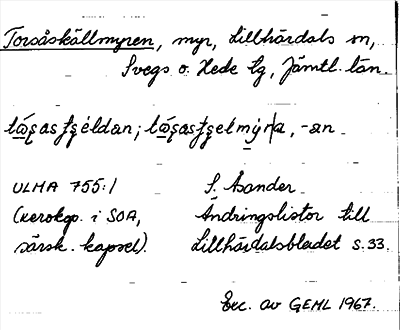 Torsåskällmyren, myr, Lillhärdals sn,
Svegs o. Hede tg, Jämtl. län.
ULMA 755:1 S. Asander
(xerokop. i SOA, Ändringslistor till
särsk. kapsel). Lillhärdalsbladet s. 33.
Exc. av GEHL 1967.